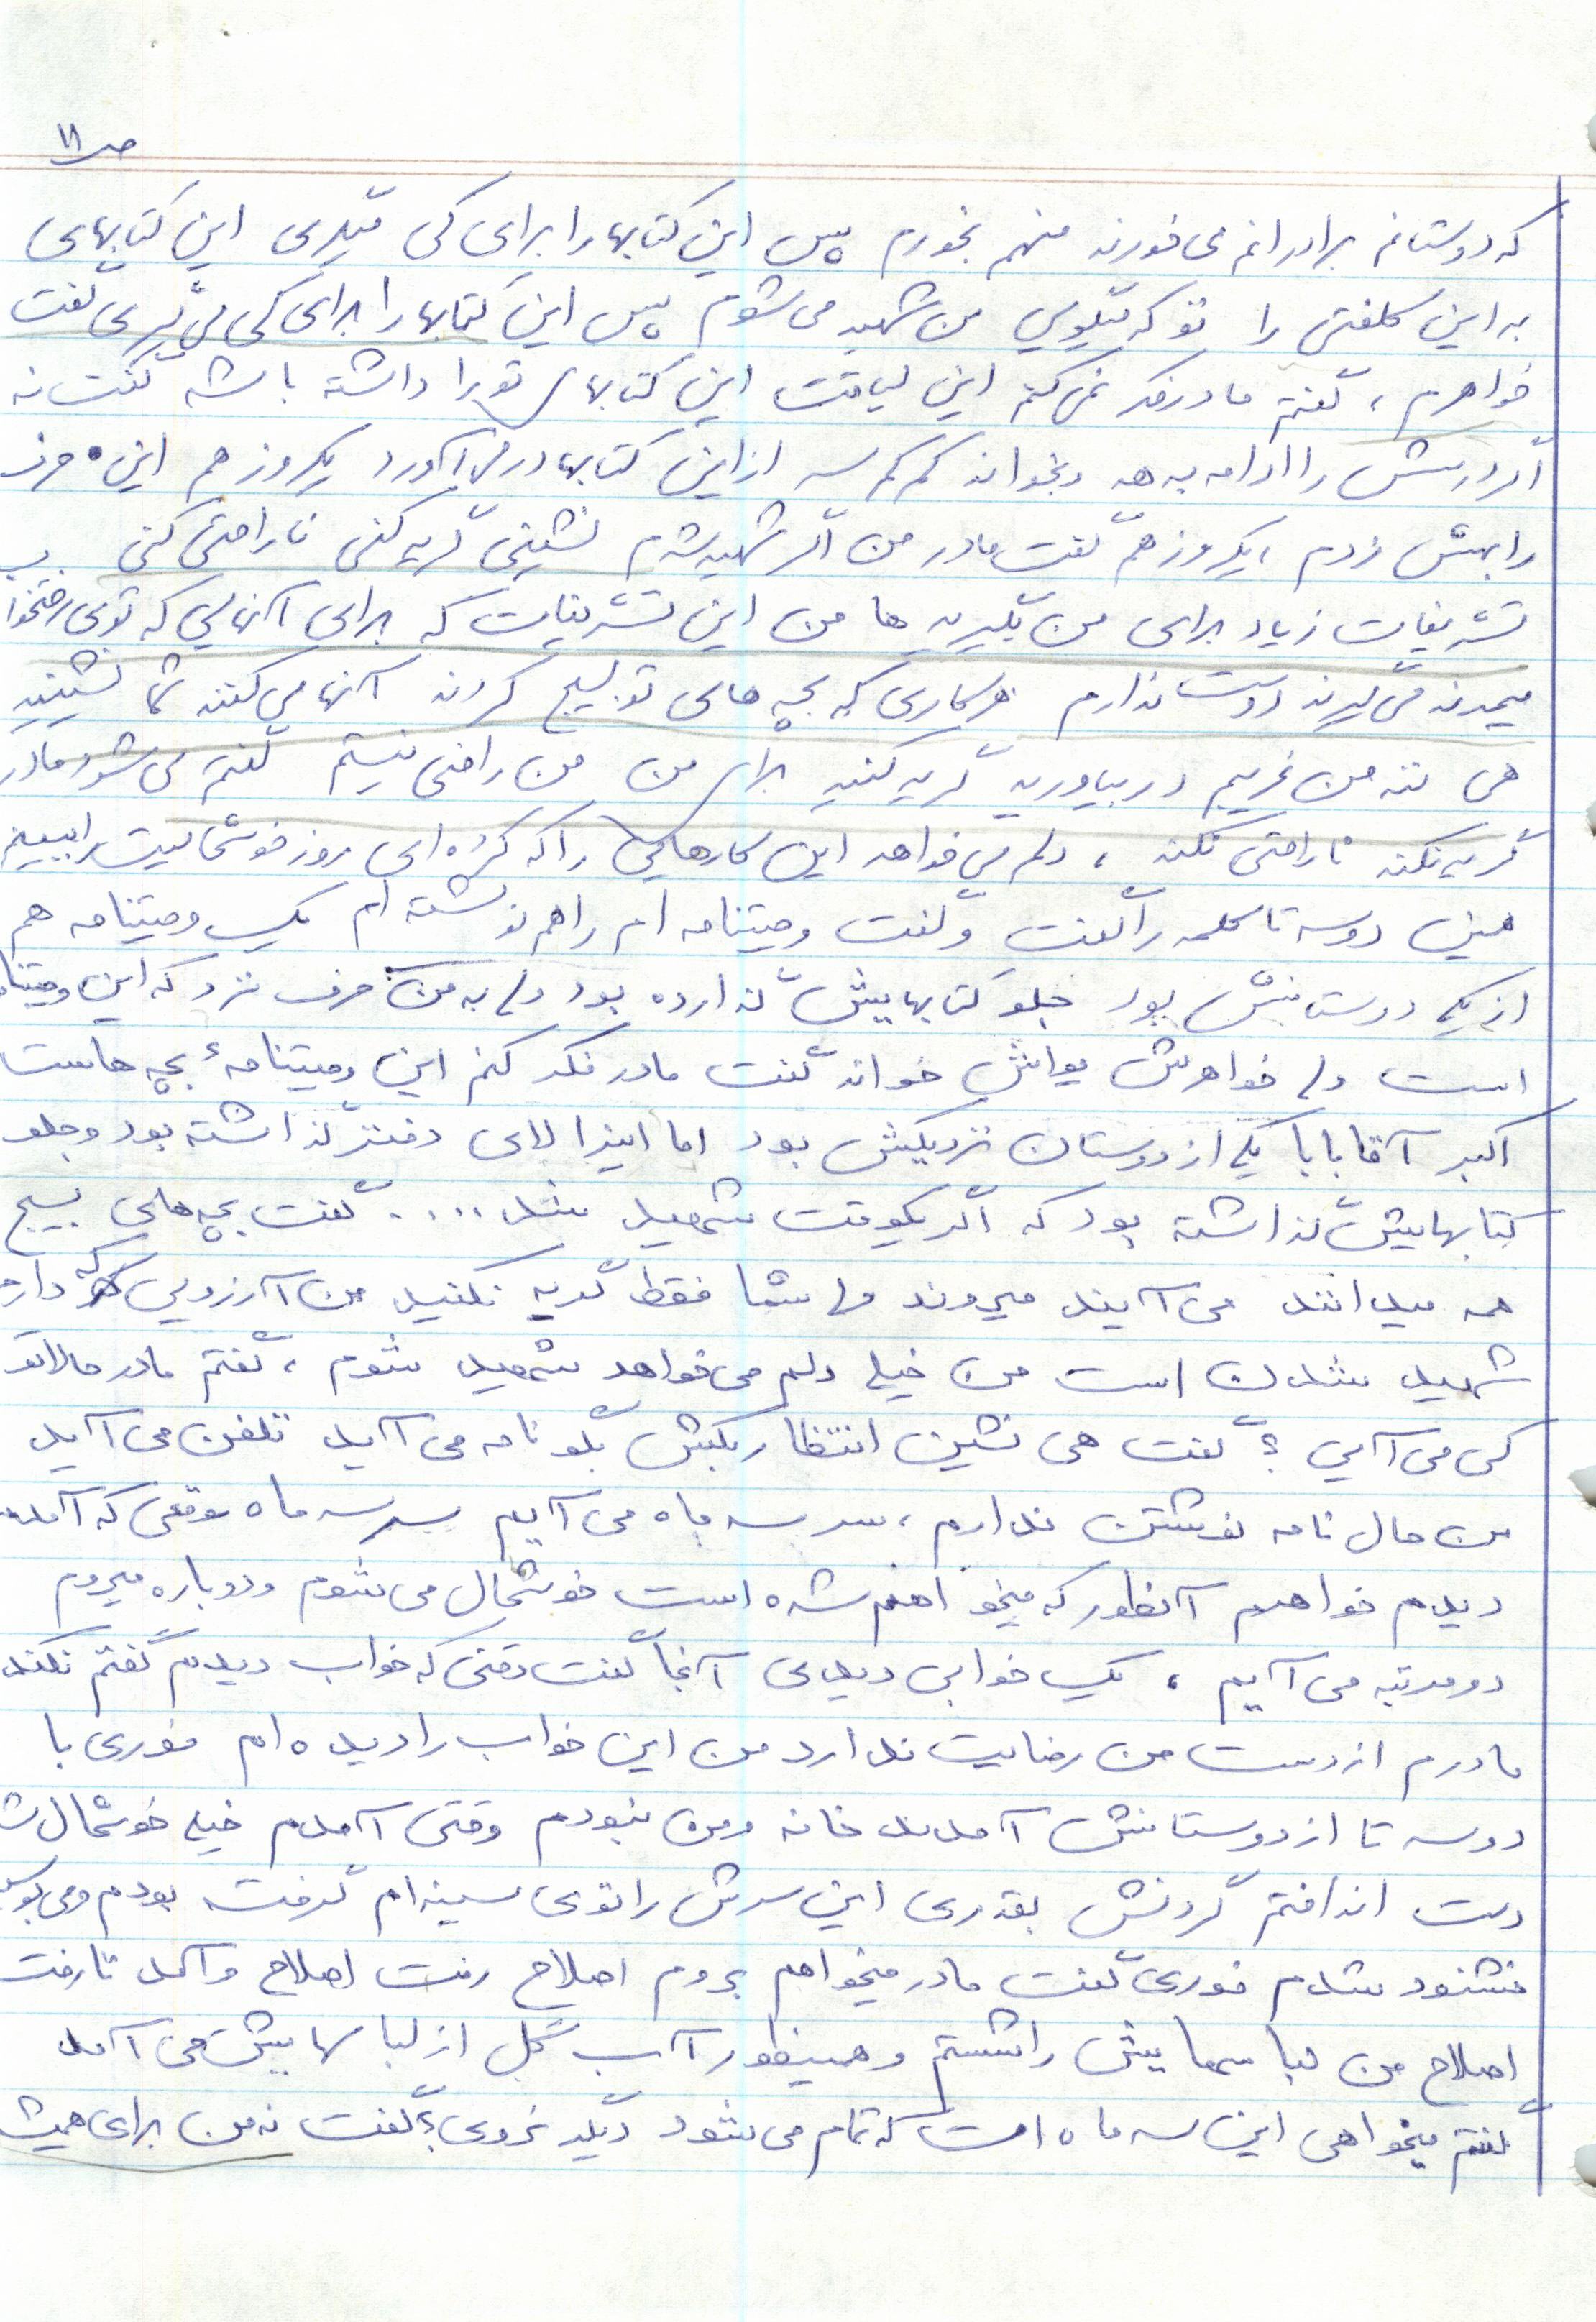 ص ۱۱
که دوستانم برادرانم می خورند منهم بخورم پس این کتابها را برای کی میگیری این کتابهای
به این کلفتی را تو که میگویی من شهید می شوم پس این کتابها را برای کی می گیری گفت
خواهرم ، گفتم مادر فکر نمی کنم این لیاقت این کتابهای تو را داشته باشه گفت نه
اگر درسش را ادامه بدهد و بخواند کم کم سر از این کتابها در می آورد یکروز هم این حرف
را بهش زدم ، یکروز هم گفت مادر من اگر شهید شدم نشینی گریه کنی ناراحتی کنی
تشریفات زیاد برای من بگیرید ها من این تشریفات که برای آنهایی که توی رختخواب
میمیرند می گیرند دوست ندارم هر کاری که بچه های تو بسیج کردند آنها می کنند شما نشینید
هی ننه من غریبم در بیاورید گریه کنید برای من من راضی نیستم گفتم می شود مادر
گریه نکند ناراحتی نکند ، دلم می خواهد این کارهایی را که کرده ای روز خوشحالیت را ببینم
همین دو سه تا کلمه را گفت و گفت وصیتنامه ام را هم نوشته ام یک وصیتنامه هم
از یکی دوستانش بود جلو کتابهایش گذارده بود ولی به من حرف نزد که این وصیتنامه
است ولی خواهرش یواش خواند گفت مادر فکر کنم این وصیتنامهٔ بچه هاست
اکبر آقا بابا یکی از دوستان نزدیکش بود اما اینرا لای دفتر گذاشته بود و جلو
کتابهایش گذاشته بود که اگر یکوقت شهید شد .... گفت بچه های بسیج
همه میدانند می آیند میروند ولی شما فقط گریه نکنید من آرزویی که دارم
شهید شدن است من خیلی دلم می خواهد شهید شوم ، گفتم مادر حالا تو
کی می آیی ؟ گفت هی نشین انتظار بکش بگو نامه می آید تلفن می آید
من حال نامه نوشتن ندارم ، سر سه ماه می آیم سر سه ماه موقعی که آمدم
دیدم خواهرم آنطور که میخواهم شده است خوشحال می شوم و دوباره میروم
دو مرتبه می آیم ، یک خوابی دیدی آنجا گفت وقتی که خواب دیدم گفتم نکند
مادرم از دست من رضایت ندارد من این خواب را دیده ام فوری با
دو سه تا از دوستانش آمدند خانه و من نبودم وقتی آمدم خیلی خوشحال شد
دست انداختم گردنش بقدری این سرش را توی سینه ام گرفت بودم و می بوسید
خشنود شدم فوری گفت مادر میخواهم بروم اصلاح رفت اصلاح و آمد تا رفت
اصلاح من لباسهایش را شستم و همینطور آب گل از لباسهایش می آمد
گفتم میخواهی این سه ماه است که تمام می شود دیگر نروی ؟ گفت نه من برای همیشه